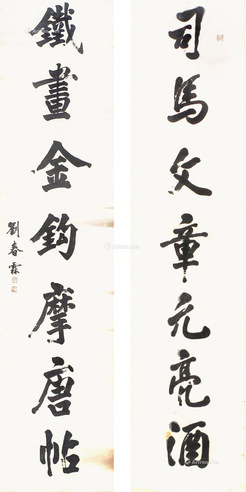 司馬文章元亮酒
鐵畫金鈎摩唐帖
劉春霖